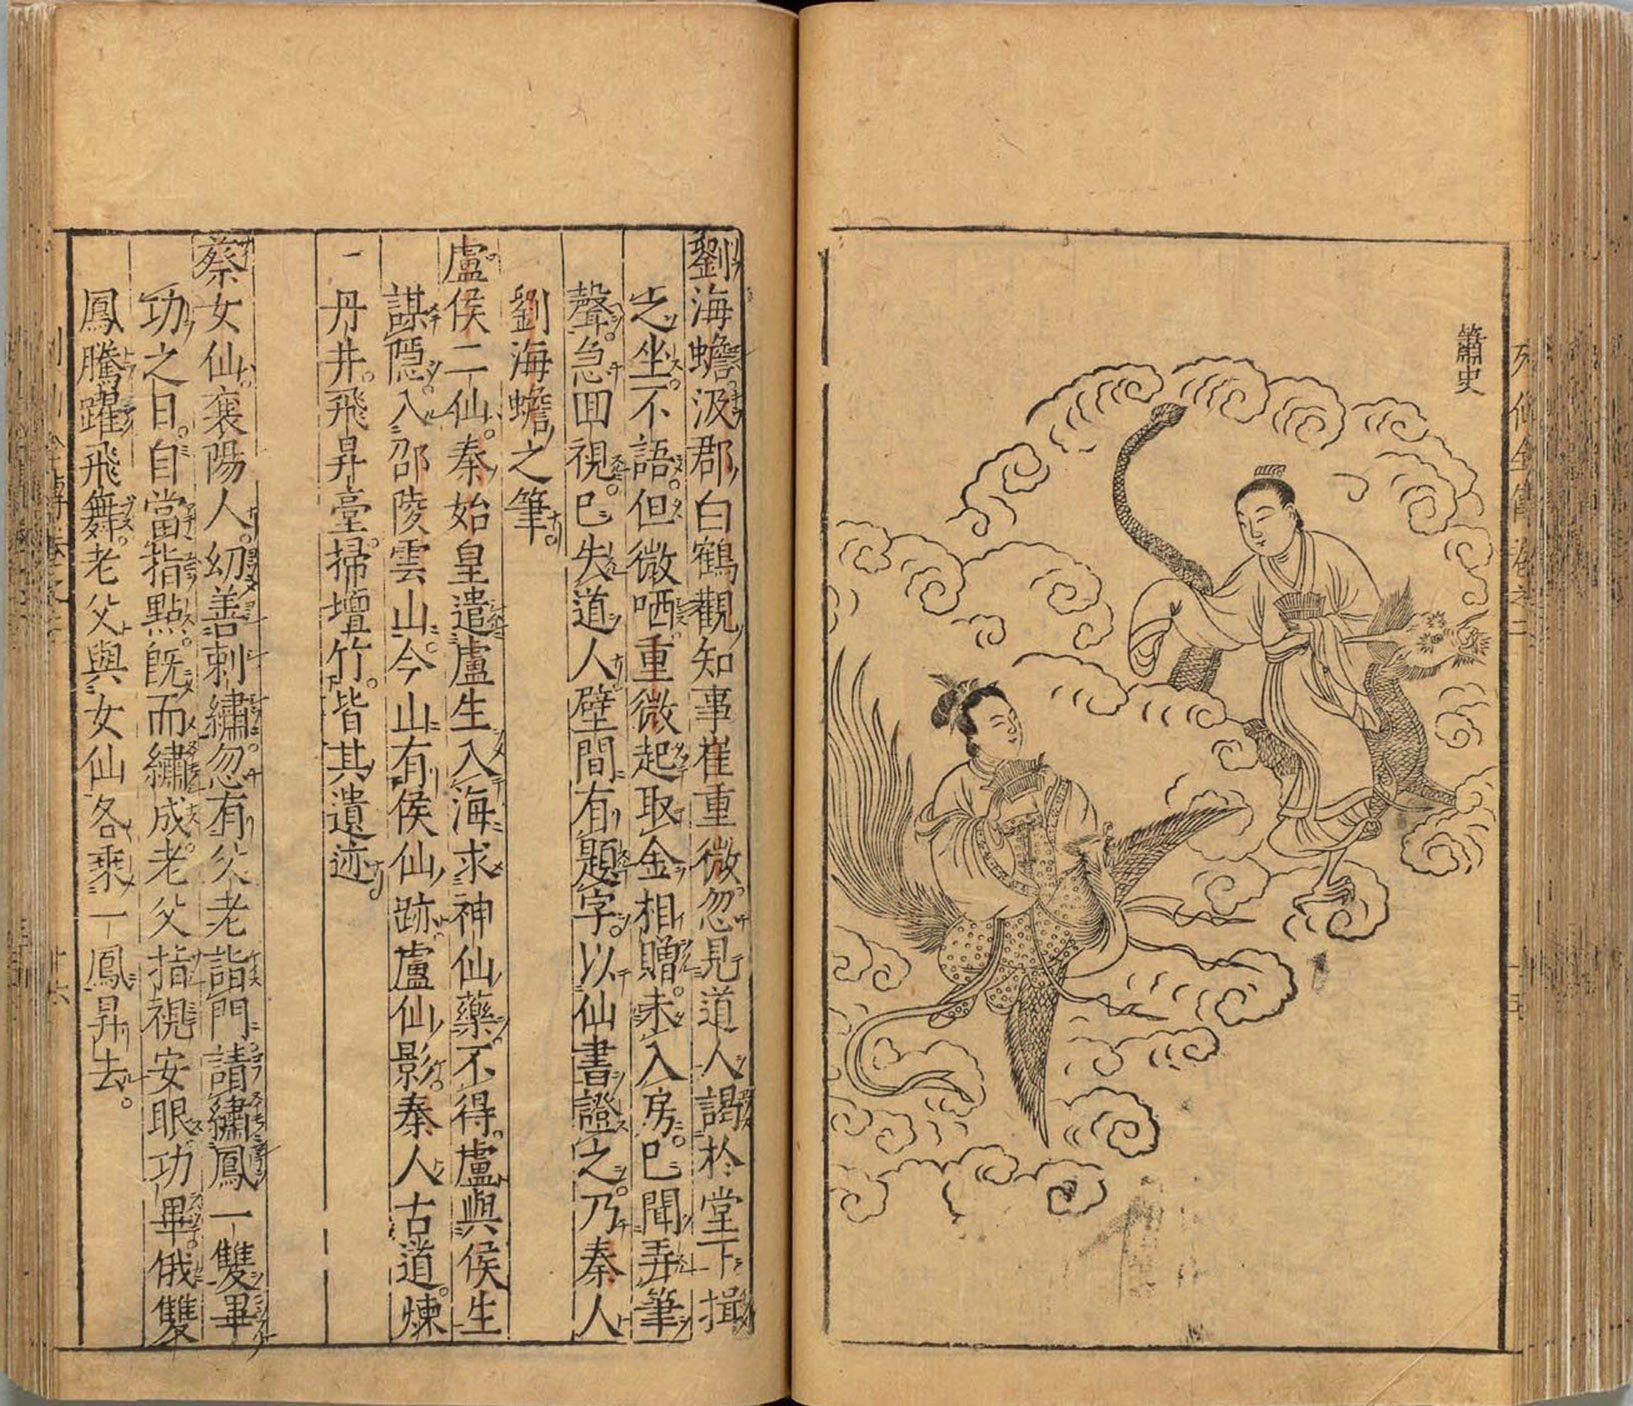 簫史
劉海蟾汲郡白鶴觀知事崔重微忽見道人謁於堂下揖
之坐不語但微哂重微起取金相贈未入房已聞弄筆
聲急囬視已失道人壁間有題字以仙書證之乃秦人
劉海蟾之筆
盧侯二仙秦始皇遣盧生入海求神仙藥不得盧與侯生
謀隱入邵陵雲山今山有侯仙跡盧仙影秦人古道煉
丹井飛昇臺掃壇竹皆其遺迹
蔡女仙襄陽人幼善刺繡忽有父老詣門請繡鳳一雙畢
功之日自當指點既而繡成老父指視安眼功畢俄雙
鳳騰躍飛舞老父與女仙各乘一鳳昇去